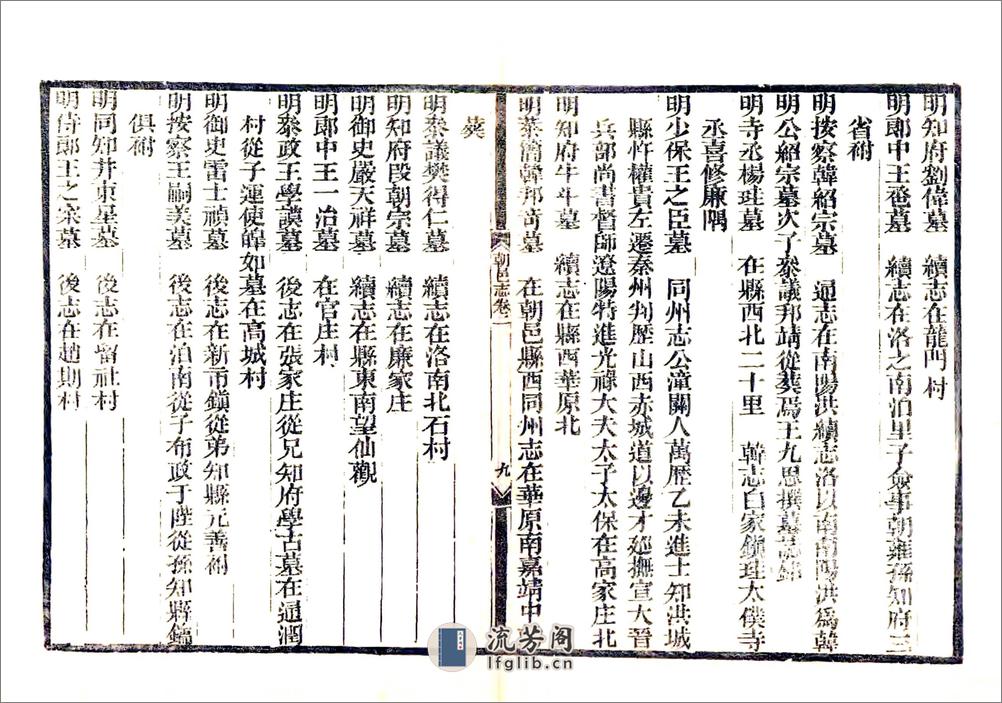 明知府劉偉墓　續志在龍門村
明郎中王　墓　續志在洛之南泊里子僉事朝雍孫知府三
省祔
明按察韓紹宗墓　通志在南陽洪續志洛以南南陽洪為韓
明公紹宗墓次子叅議邦靖從葬焉王九思撰墓誌銘
明寺丞楊珪墓　在縣西北二十里　韓志白家鎮珪太僕寺
丞喜修廉隅
明少保王之臣墓　同州志公潼關人萬歷乙未進士知洪城
縣忤權貴左遷秦州判歷山西赤城道以邊才廵撫宣大晉
兵部尚書督師遼陽特進光祿大夫太子太保在高家庄北
明知府牛斗墓　續志在縣西華原北
明萊　韓邦奇墓　在朝邑縣西同州志在華原南嘉靖中
朝邑志卷二
九
葬
明叅議樊得仁墓　續志在洛南北石村
明知府段朝宗墓　續志在廉家庄
明御史嚴天祥墓　續志在縣東南望仙觀
明郎中王一治墓　在官庄村
明叅政王學謨墓　後志在張家庄從兄知府學古墓在通潤
村從子運使皥如墓在高城村
明御史雷士禎墓　後志在新市鎮從弟知縣元善祔
明按察王嗣美墓　後志在泊南從子布政于陛從孫知縣鐘
俱祔
明同知井東星墓　後志在留社村
明侍郎王之寀墓　後志在趙期村
流芳阁
lfglib.cn